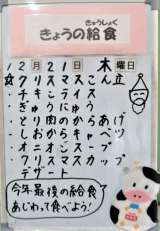 きゅうしょく
きょうの給食
12月21日 木曜日
☆クリスマスこん立
・チキンライス
・ぎゅうにゅう
・とりにくのからあげ
・キャベツ
・オニオンスープ
・クリスマスカップ
デザート
今年最後の給食
あじわって食べよう!